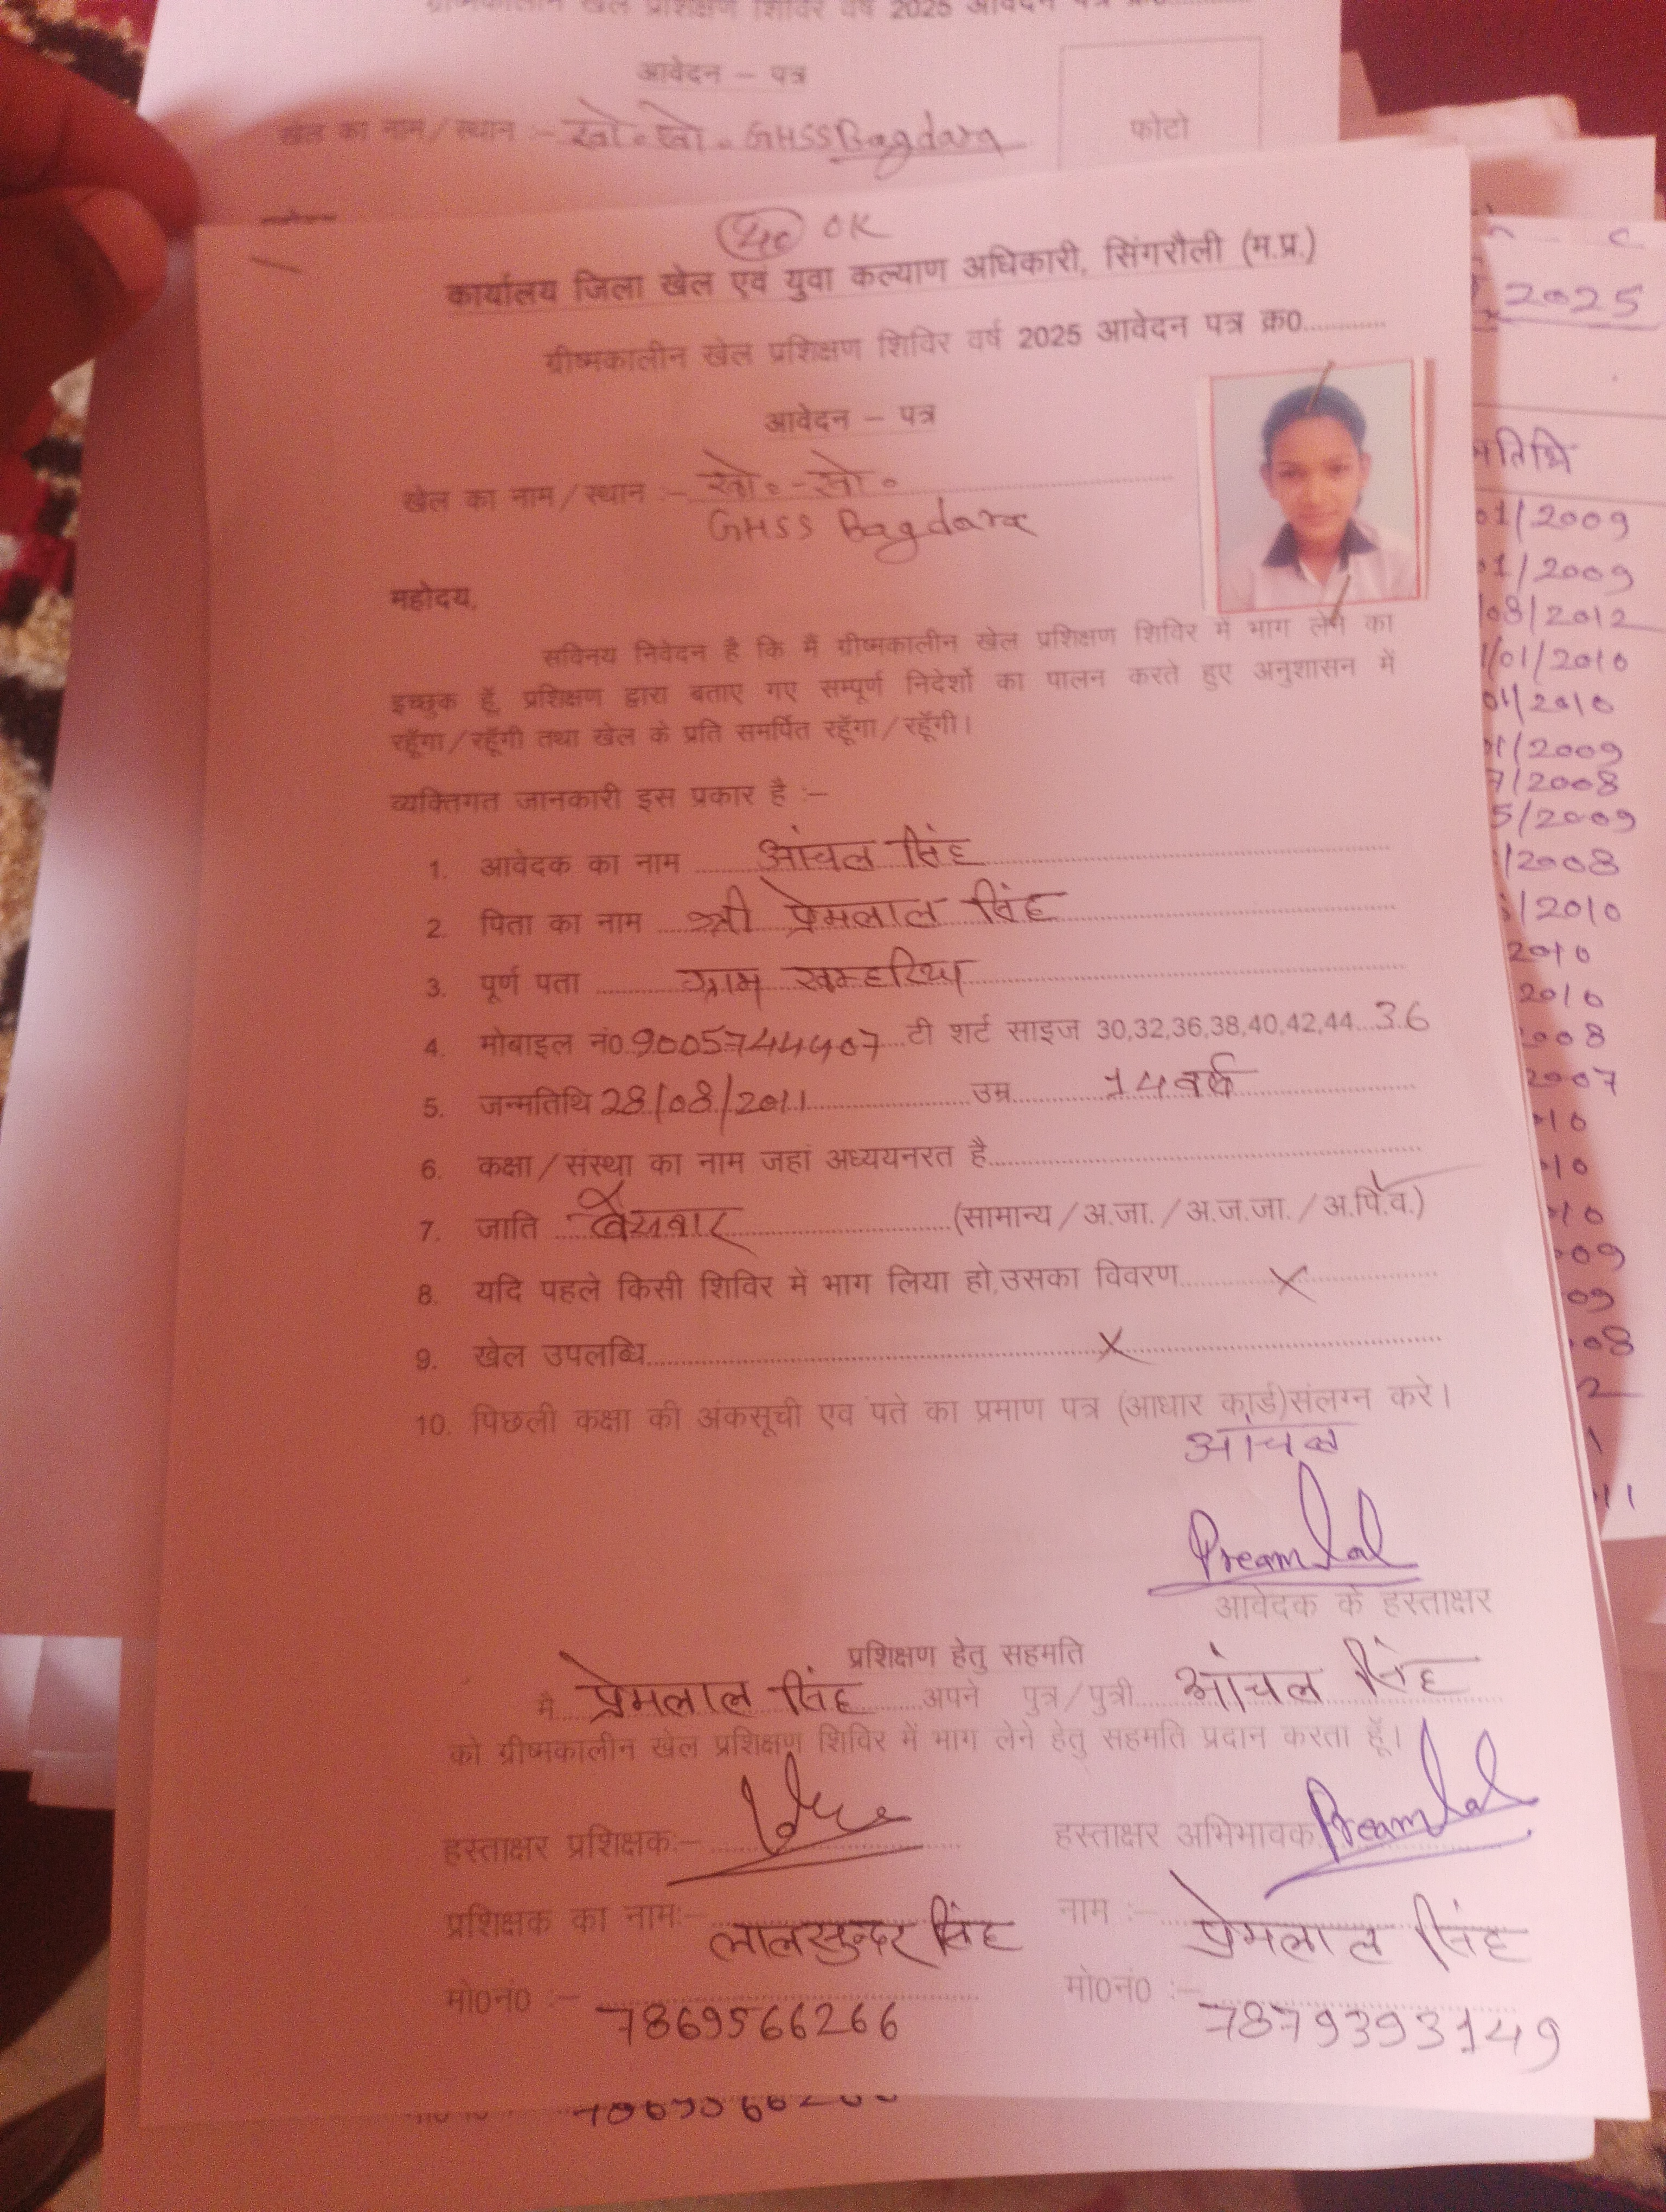 ग्रीष्मकालीन खेल प्रशिक्षण शिविर वर्ष 2025 आवेदन पत्र क्र0............
आवेदन – पत्र
खेल का नाम/स्थान :- खो०खो० GHSS Bagdara
फोटो
OK
कार्यालय जिला खेल एवं युवा कल्याण अधिकारी, सिंगरौली (म.प्र.)
ग्रीष्मकालीन खेल प्रशिक्षण शिविर वर्ष 2025 आवेदन पत्र क्र0............
आवेदन – पत्र
खेल का नाम/स्थान :- खो०-खो०
GHSS Bagdara
महोदय,
सविनय निवेदन है कि मैं ग्रीष्मकालीन खेल प्रशिक्षण शिविर में भाग लेने का
इच्छुक हूँ, प्रशिक्षण द्वारा बताए गए सम्पूर्ण निदेर्शो का पालन करते हुए अनुशासन में
रहूँगा/रहूँगी तथा खेल के प्रति समर्पित रहूँगा/रहूँगी।
व्यक्तिगत जानकारी इस प्रकार है :–
1. आवेदक का नाम आंचल सिंह
2. पिता का नाम श्री प्रेमलाल सिंह
3. पूर्ण पता ग्राम खम्हरिया
4. मोबाइल नं0 9005744407 टी शर्ट साइज 30,32,36,38,40,42,44...36
5. जन्मतिथि 28/08/2011 उम्र 14 वर्ष
6. कक्षा/संस्था का नाम जहां अध्ययनरत है
7. जाति बैसवार (सामान्य/अ.जा./अ.ज.जा./अ.पि.व.)
8. यदि पहले किसी शिविर में भाग लिया हो,उसका विवरण X
9. खेल उपलब्धि X
10. पिछली कक्षा की अंकसूची एव पते का प्रमाण पत्र (आधार कार्ड)संलग्न करे।
आंचल
Preamlal
आवेदक के हस्ताक्षर
प्रशिक्षण हेतु सहमति
मै प्रेमलाल सिंह अपने पुत्र/पुत्री आंचल सिंह
को ग्रीष्मकालीन खेल प्रशिक्षण शिविर में भाग लेने हेतु सहमति प्रदान करता हूँ।
हस्ताक्षर प्रशिक्षक:– हस्ताक्षर अभिभावक Preamlal
प्रशिक्षक का नाम:– लालसुन्दर सिंह नाम :– प्रेमलाल सिंह
मो0नं0 :– 7869566266 मो0नं0 :– 7879393149
2025
01/2009
01/2009
/08/2012
1/01/2010
01/2010
01/2009
7/2008
5/2009
/2008
/2010
2010
2010
2008
2007